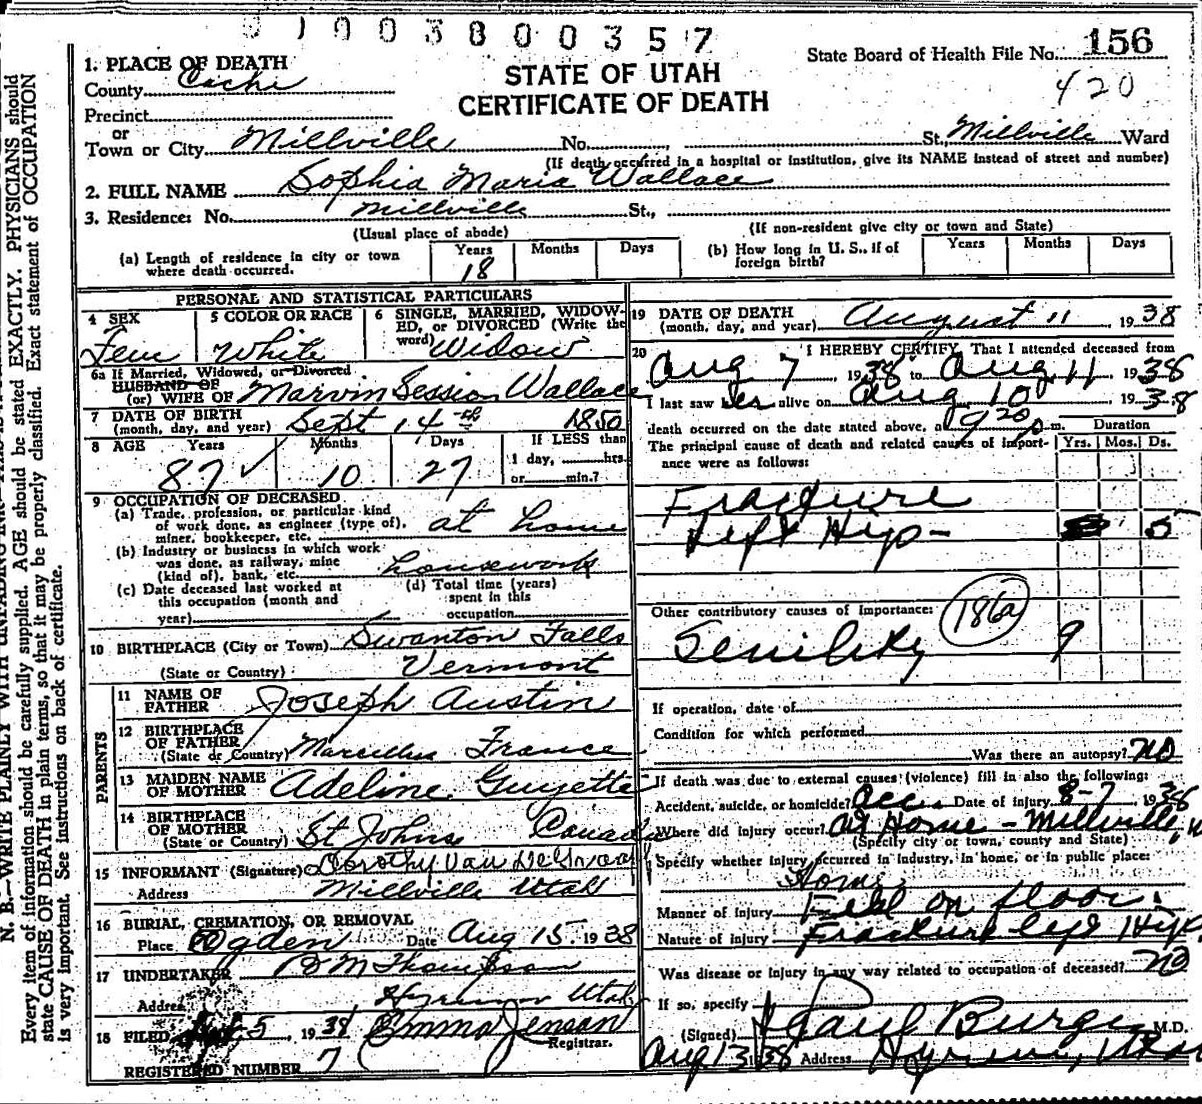 0 1 0 0 3 8 0 0 3 5 7
State Board of Health File No. 156
420
STATE OF UTAH
CERTIFICATE OF DEATH
1. PLACE OF DEATH
County Cache
Precinct
or
Town or City Millville No. , St., Millville Ward
(If death occurred in a hospital or institution, give its NAME instead of street and number)
2. FULL NAME Sophia Maria Wallace
3. Residence: No. Millville St.,
(Usual place of abode) (If non-resident give city or town and State)
(a) Length of residence in city or town where death occurred. Years 18 Months Days
(b) How long in U. S., if of foreign birth? Years Months Days
PERSONAL AND STATISTICAL PARTICULARS
4 SEX Fem
5 COLOR OR RACE White
6 SINGLE, MARRIED, WIDOWED, or DIVORCED (Write the word) Widow
6a If Married, Widowed, or Divorced
HUSBAND OF
(or) WIFE OF Marvin Session Wallace
7 DATE OF BIRTH
(month, day, and year) Sept 14th 1850
8 AGE Years 87 Months 10 Days 27
If LESS than
1 day, hrs.
or min.?
9 OCCUPATION OF DECEASED
(a) Trade, profession, or particular kind
of work done, as engineer (type of),
miner, bookkeeper, etc. at home
(b) Industry or business in which work
was done, as railway, mine
(kind of), bank, etc. housework
(c) Date deceased last worked at
this occupation (month and
year)
(d) Total time (years)
spent in this
occupation
10 BIRTHPLACE (City or Town) Swanton Falls
(State or Country) Vermont
PARENTS
11 NAME OF FATHER Joseph Austin
12 BIRTHPLACE OF FATHER
(State or Country) Marcelles France
13 MAIDEN NAME OF MOTHER Adeline Guyette
14 BIRTHPLACE OF MOTHER
(State or Country) St Johns Canada
15 INFORMANT (Signature) Dorothy Van
Address Millville Utah
16 BURIAL, CREMATION, OR REMOVAL
Place Ogden Date Aug 15, 1938
17 UNDERTAKER M Thompson
Address Hyrum Utah
18 FILED 5, 1938 Emma Jensen
Registrar.
REGISTERED NUMBER 7
19 DATE OF DEATH
(month, day, and year) August 11, 1938
20 I HEREBY CERTIFY, That I attended deceased from
Aug 7 1938 to Aug 11 1938
I last saw her alive on Aug 10 1938
death occurred on the date stated above, a 9 20 p.m.
The principal cause of death and related causes of importance were as follows:
Duration
Yrs. Mos. Ds.
Fracture
Left Hip- 5
Other contributory causes of importance: 186a
Senility 9
If operation, date of
Condition for which performed
Was there an autopsy? No
If death was due to external causes (violence) fill in also the following:
Accident, suicide, or homicide? Acc. Date of injury 8-7 1938
Where did injury occur? At Home - Millville,
(Specify city or town, county and State)
Specify whether injury occurred in industry, in home, or in public place:
Home
Manner of Injury Fell on floor.
Nature of injury Fracture left Hip
Was disease or injury in any way related to occupation of deceased? No
If so, specify
(Signed) Paul Burge M.D.
Aug 13 1938 Address Hyrum, Utah
N. B.—WRITE PLAINLY WITH UNFADING
Every item of information should be carefully supplied. AGE should be stated EXACTLY. PHYSICIANS should
state CAUSE OF DEATH in plain terms, so that it may be properly classified. Exact statement of OCCUPATION
is very important. See instructions on back of certificate.